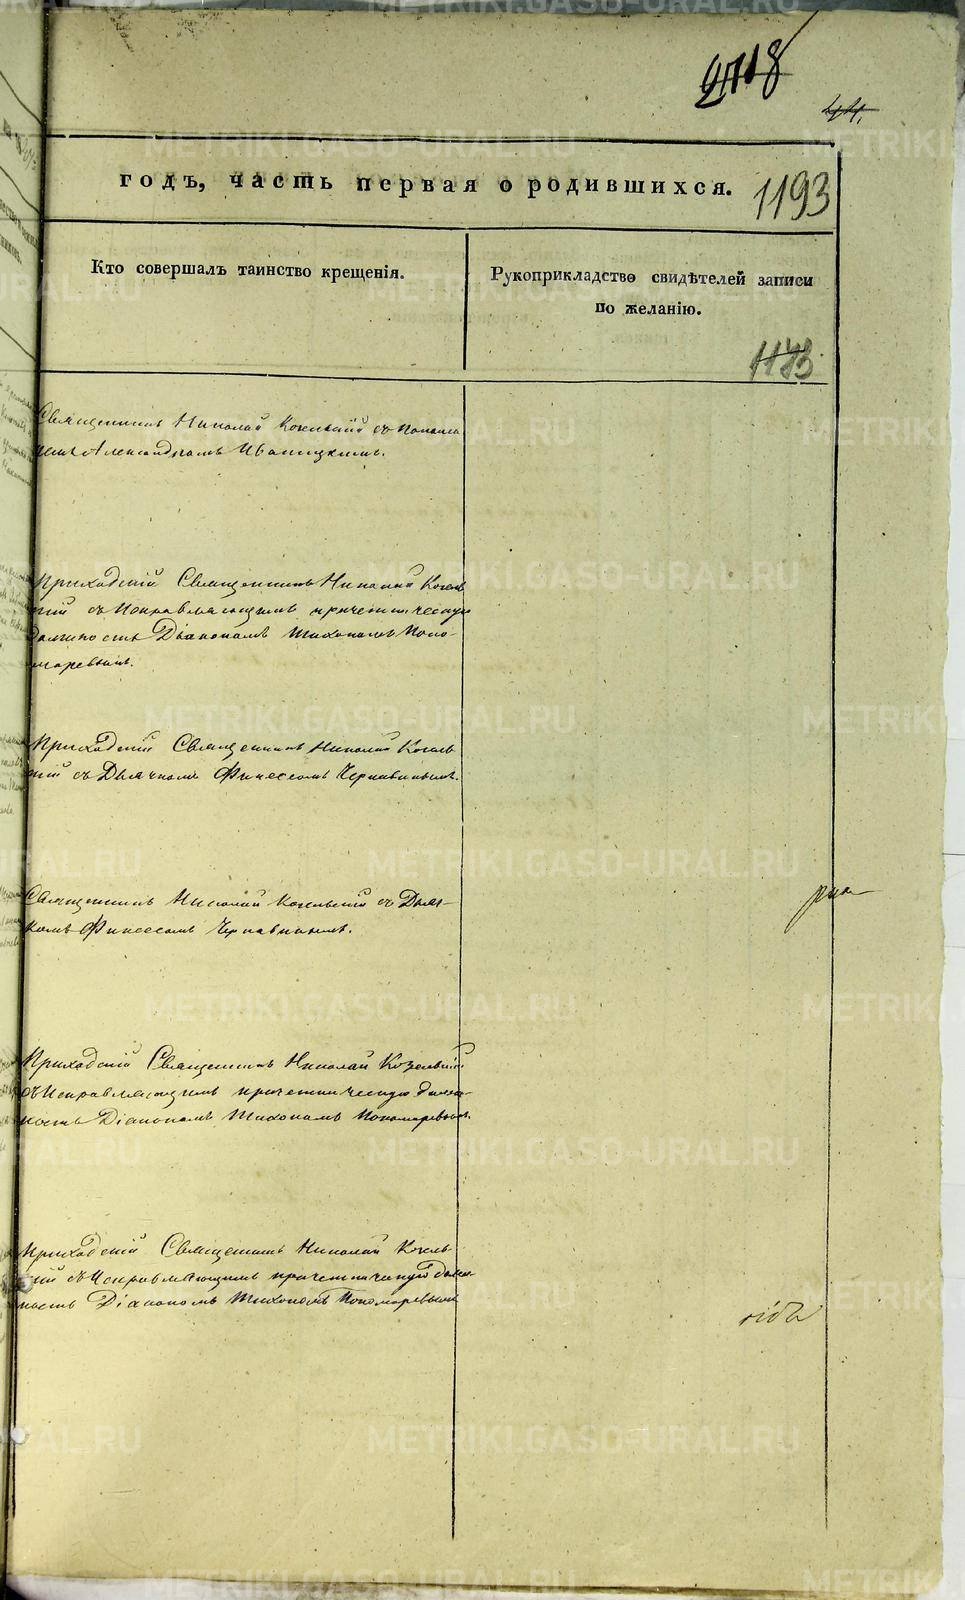 2718
44.
годъ, часть первая о родившихся.
1193
Кто совершалъ таинство крещенія.
Рукоприкладство свидѣтелей записи
по желанію.
1173
Священникъ Николай Козельскій съ
Александромъ Иваницкимъ.
Приходскій Священникъ Николай Козель
скій съ Исправляющимъ причетническую
должность Діакономъ Тихономъ Поно-
маревымъ.
Приходскій Священникъ Николай Козель
скій съ Дьячкомъ Финеесомъ Чернавинымъ.
Священникъ Николай Козельскій съ Дьяч-
комъ Финеесомъ Чернавинымъ.
Приходскій Священникъ Николай Козельскій
съ Исправляющимъ причетническую долж-
ность Діакономъ Тихономъ Пономаревымъ.
Приходскій Священникъ Николай Козель
скій съ Исправляющимъ причетническую долж-
ность Діакономъ Тихономъ Пономаревымъ
METRIKI.GASO-URAL.RU